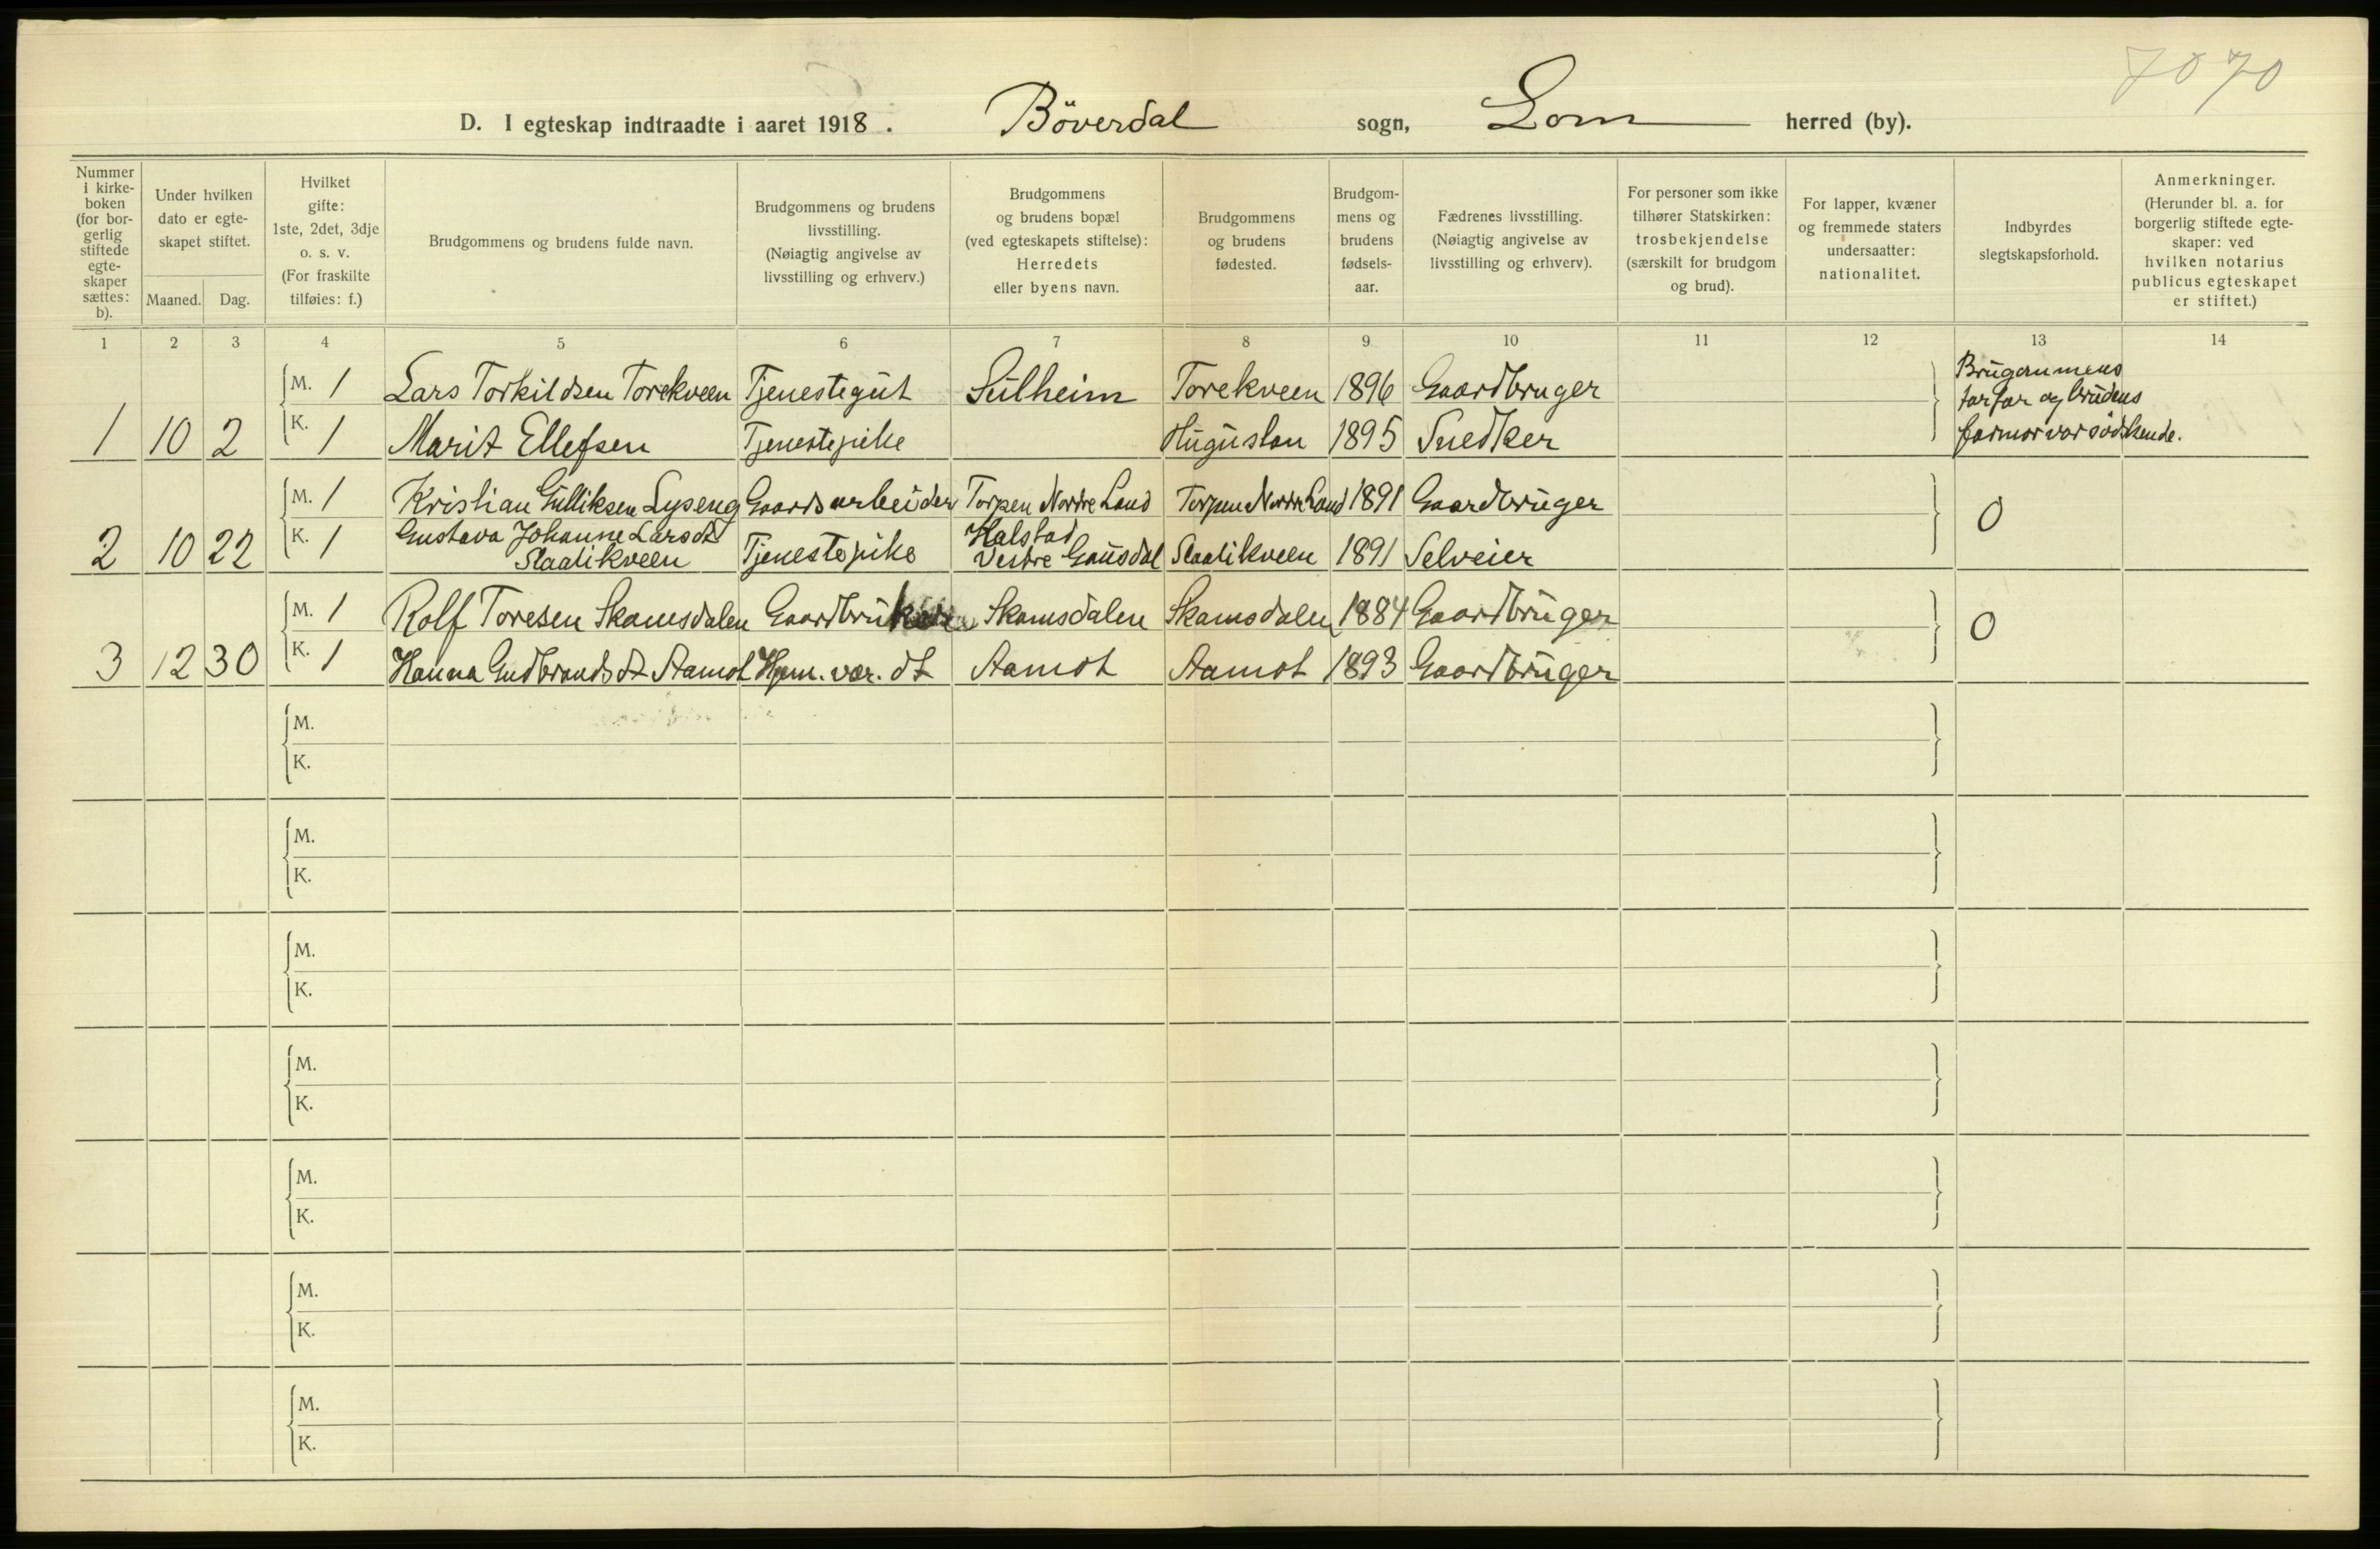 7070
D. I egteskap indtraadte i aaret 1918. Böverdal sogn, Lom herred (by).
Nummer i kirke-boken (for bor-gerlig stiftede egte-skaper sættes: b).
Under hvilken dato er egte-skapet stiftet.
Maaned. Dag.
Hvilket gifte: 1ste, 2det, 3dje o. s. v. (For fraskilte tilføies: f.)
Brudgommens og brudens fulde navn.
Brudgommens og brudens livsstilling. (Nøiagtig angivelse av livsstilling og erhverv.)
Brudgommens og brudens bopæl (ved egteskapets stiftelse): Herredets eller byens navn.
Brudgommens og brudens fødested.
Brudgom-mens og brudens fødsels-aar.
Fædrenes livsstilling. (Nøiagtig angivelse av livsstilling og erhverv).
For personer som ikke tilhører Statskirken: trosbekjendelse (særskilt for brudgom og brud).
For lapper, kvæner og fremmede staters undersaatter: nationalitet.
Indbyrdes slegtskapsforhold.
Anmerkninger. (Herunder bl. a. for borgerlig stiftede egte-skaper: ved hvilken notarius publicus egteskapet er stiftet.)
1 2 3 4 5 6 7 8 9 10 11 12 13 14
M. 1 Lars Torkildsen Torekveen Tjenestegut Sulheim Torekveen 1896 Gaardbruger
1 10 2 K. 1 Marit Ellefsen Tjenestepike Huguslon 1895 Snedker
Brugommens
farfar og brudens
farmor var södskende.
M. 1 Kristian Gulliksen Lyseng Gaardsarbeider Torpen Nordre Land Torpen Nordre Land 1891 Gaardbruger
2 10 22 K. 1 Gustava Johanne Larsdt Slaalikveen Tjenestepike Halstad Vestre Gausdal Slaalikveen 1891 Selveier
0
M. 1 Rolf Toresen Skamsdalen Gaardbruker Skamsdalen Skamsdalen 1884 Gaardbruger
3 12 30 K. 1 Hanna Gudbrandsdt Aamot Hjem. vær. dt Aamot Aamot 1893 Gaardbruger
0
M.
K.
M.
K.
M.
K.
M.
K.
M.
K.
M.
K.
M.
K.